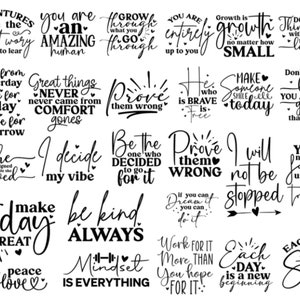 you are
an
AMAZING
human
GROW
through
what you
through
YOU ARE
entirely
up to you
Growth is
growth
no matter how
SMALL
Great things
NEVER
never came from
COMFORT
zones
Prove
them wrong
who
is BRAVE
is
MAKE
someone
smile
today
I decide
my vibe
Be the
one who
DECIDED
to go
for it
Prove
them
WRONG
I will
not be
stopped
I make
day
REAT
be kind
ALWAYS
if you can
Dream it
you can
do it
peace
love
Mindset
IS EVERYTHING
Work FOR IT
MORE Than
you hope
FOR IT
Each
DAY
is a new
beginning